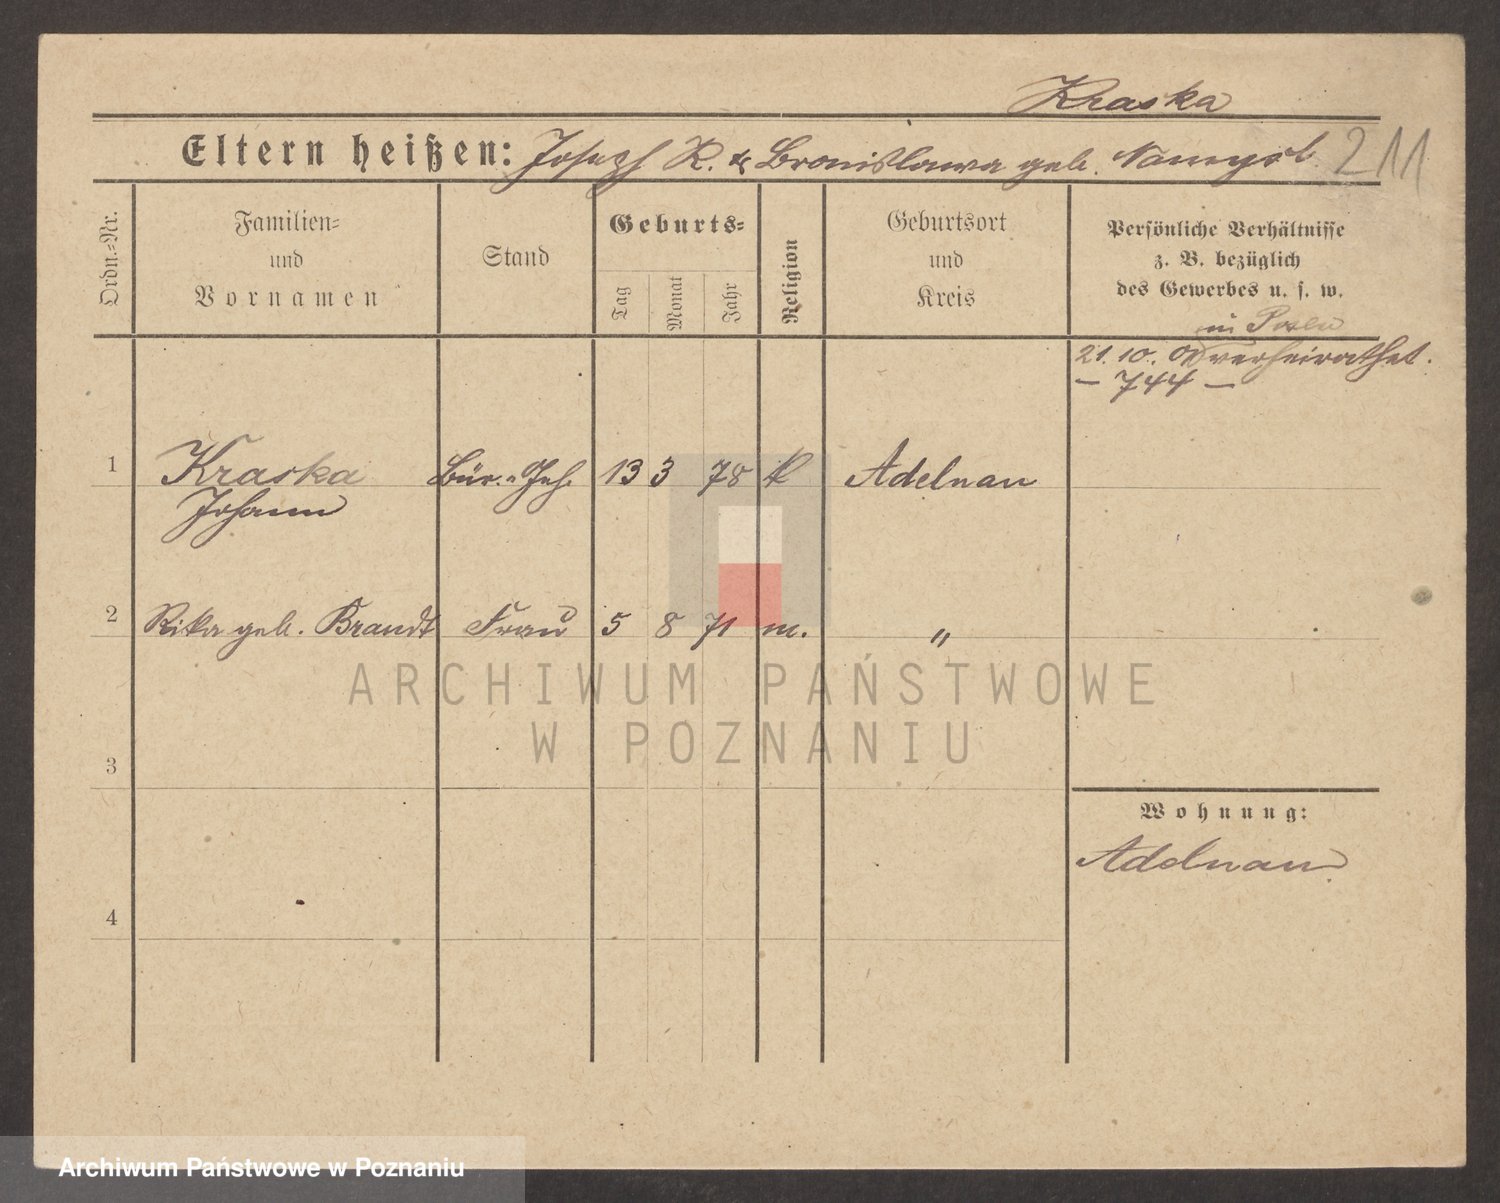 Kraska
Eltern heißen: Joseph K. & Bronislawa geb.
211
Ordn.-Nr.
Familien-
und
Vornamen
Stand
Geburts-
Tag
Monat
Jahr
Religion
Geburtsort
und
Kreis
Persönliche Verhältnisse
z. B. bezüglich
des Gewerbes u. s. w.
in Posen
21. 10. verheirathet.
— 744 —
1 Kraska Bür.-Geh. 13 3 78 k Adelnau
Johann
2 Rika geb. Brandt Frau 5 8 71 m. "
3
Wohnung:
Adelnau.
4
ARCHIWUM PAŃSTWOWE
W POZNANIU
Archiwum Państwowe w Poznaniu